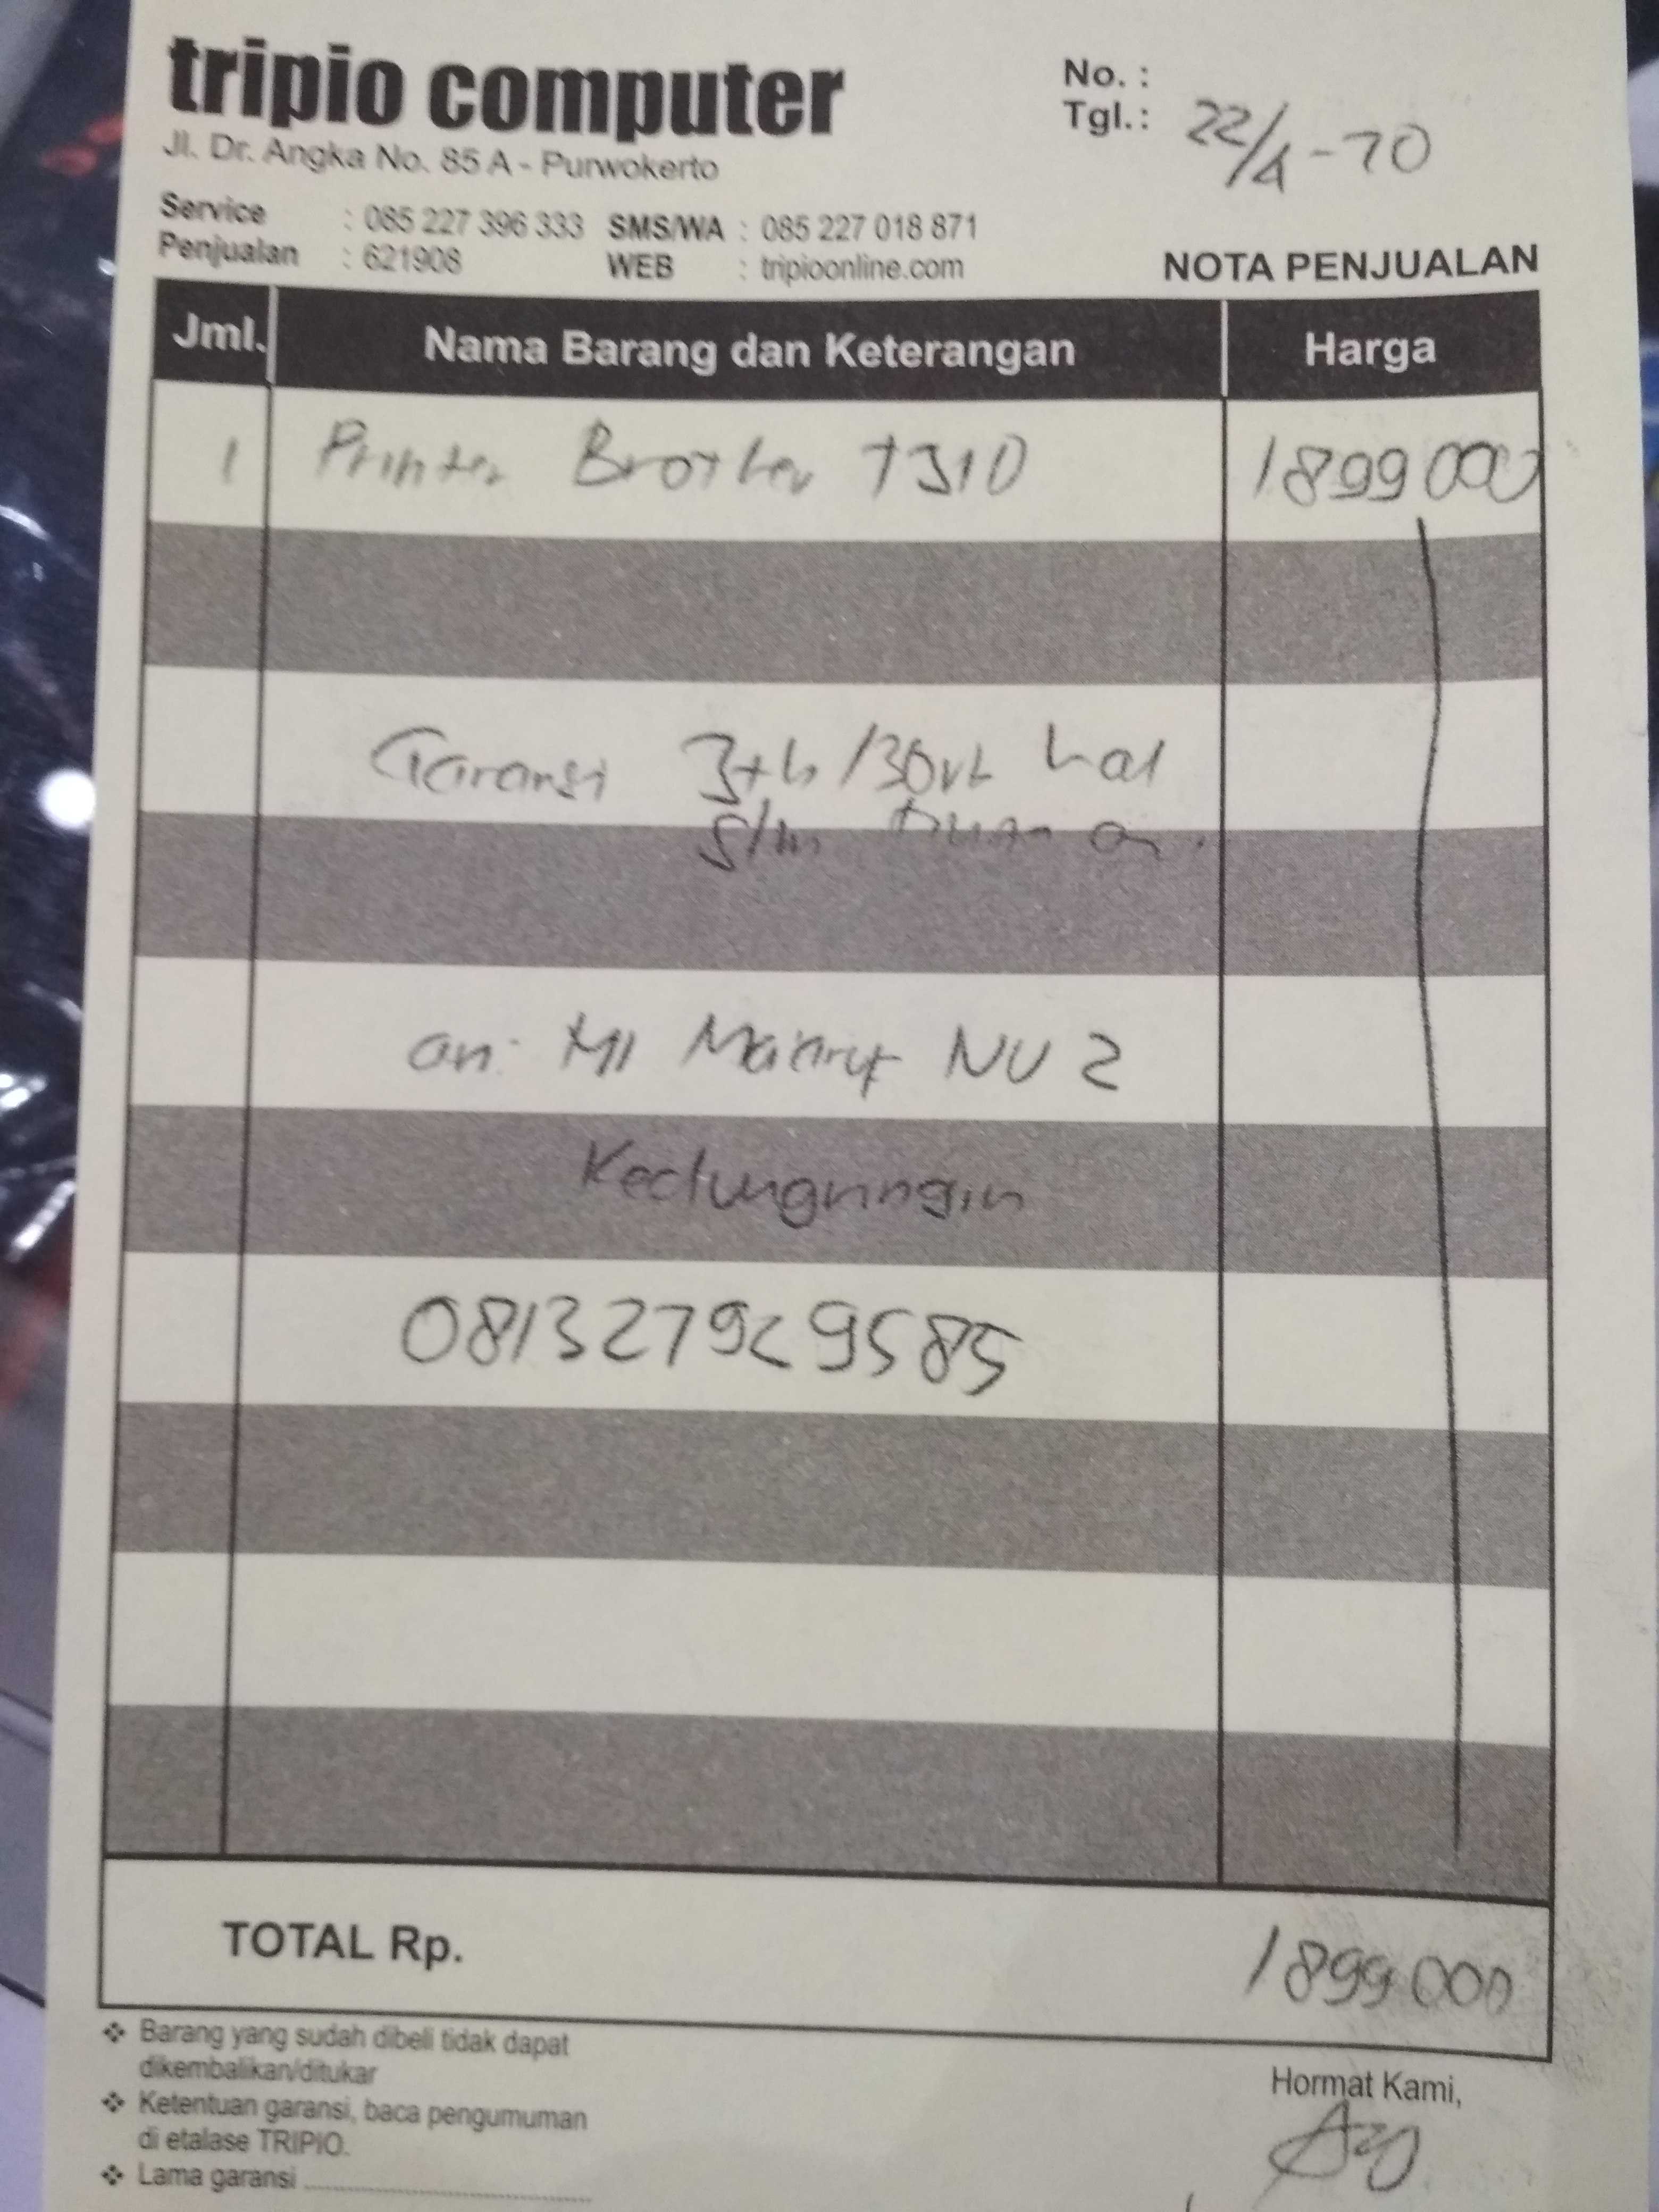 tripio computer
Jl. Dr. Angka No. 85 A - Purwokerto
Service : 085 227 396 333 SMS/WA : 085 227 018 871
Penjualan : 621908 WEB : tripioonline.com
No. :
Tgl.: 22/4-20
NOTA PENJUALAN
Jml. Nama Barang dan Keterangan Harga
1 Printer Brother T310 1899 000
Garansi 3th/30rb hal
an: MI Maarif NU 2
Kedungringin
081327929585
TOTAL Rp. 1899 000
❖ Barang yang sudah dibeli tidak dapat
dikembalikan/ditukar
❖ Ketentuan garansi, baca pengumuman
di etalase TRIPIO.
❖ Lama garansi
Hormat Kami,